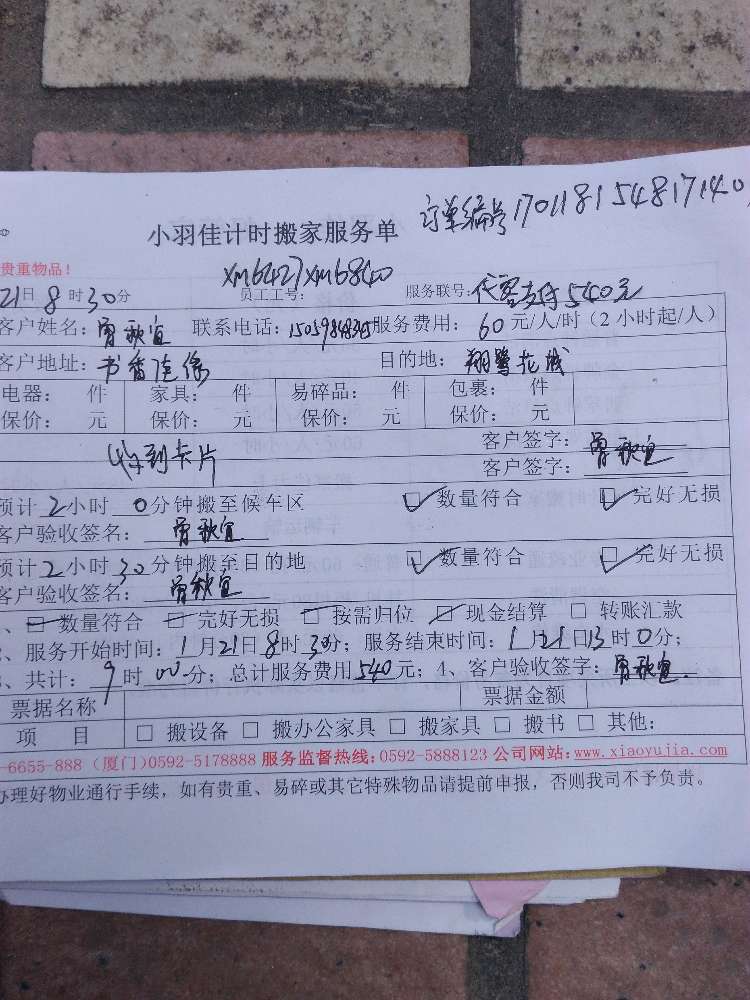 订单编号170118154817140
小羽佳计时搬家服务单
贵重物品！
xm6427xm6840
21日8时30分 员工工号： 服务联号：代客支付540元
客户姓名：曾秋宜 联系电话：服务费用：60元/人/时（2小时起/人）
客户地址：书香佳缘 目的地：翔鹭花城
电器： 件 家具： 件 易碎品： 件 包裹： 件
保价： 元 保价： 元 保价： 元 保价： 元
客户签字：曾秋宜
收到卡片 客户签字：
预计2小时0分钟搬至候车区 ☑数量符合 ☑完好无损
客户验收签名：曾秋宜
预计2小时30分钟搬至目的地 ☑数量符合 ☑完好无损
客户验收签名：曾秋宜
、☑数量符合 ☑完好无损 ☑按需归位 ☑现金结算 □转账汇款
、服务开始时间：1月21日8时30分；服务结束时间：1月21日13时0分；
、共计：9时00分；总计服务费用540元；4、客户验收签字：曾秋宜
票据名称 票据金额
项 目 □搬设备 □搬办公家具 □搬家具 □搬书 □其他：
-6655-888（厦门）0592-5178888 服务监督热线：0592-5888123 公司网站：www.xiaoyujia.com
办理好物业通行手续，如有贵重、易碎或其它特殊物品请提前申报，否则我司不予负责。